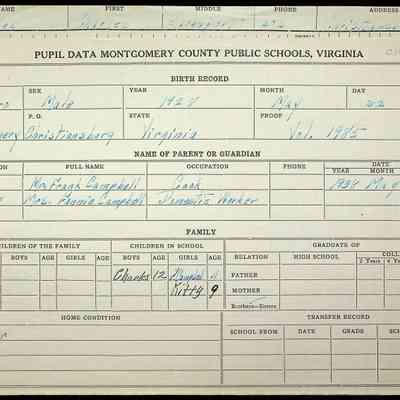 AME FIRST MIDDLE PHONE ADDRESS
PUPIL DATA MONTGOMERY COUNTY PUBLIC SCHOOLS, VIRGINIA
BIRTH RECORD
SEX YEAR MONTH DAY
Male 1928 May 22
P. O. STATE PROOF
Christiansburg Virginia Vol. 1985
NAME OF PARENT OR GUARDIAN
ION FULL NAME OCCUPATION PHONE DATE
YEAR MONTH
Mr. Frank Campbell Cook 1934 May
Mrs. Fannie Campbell Domestic Worker
FAMILY
CHILDREN OF THE FAMILY CHILDREN IN SCHOOL GRADUATE OF
BOYS AGE GIRLS AGE BOYS AGE GIRLS AGE RELATION HIGH SCHOOL COLL
2 Years 4 Y
Charles 12 FATHER
Kitty 9 MOTHER
Brothers—Sisters
HOME CONDITION TRANSFER RECORD
SCHOOL FROM DATE GRADE SCH